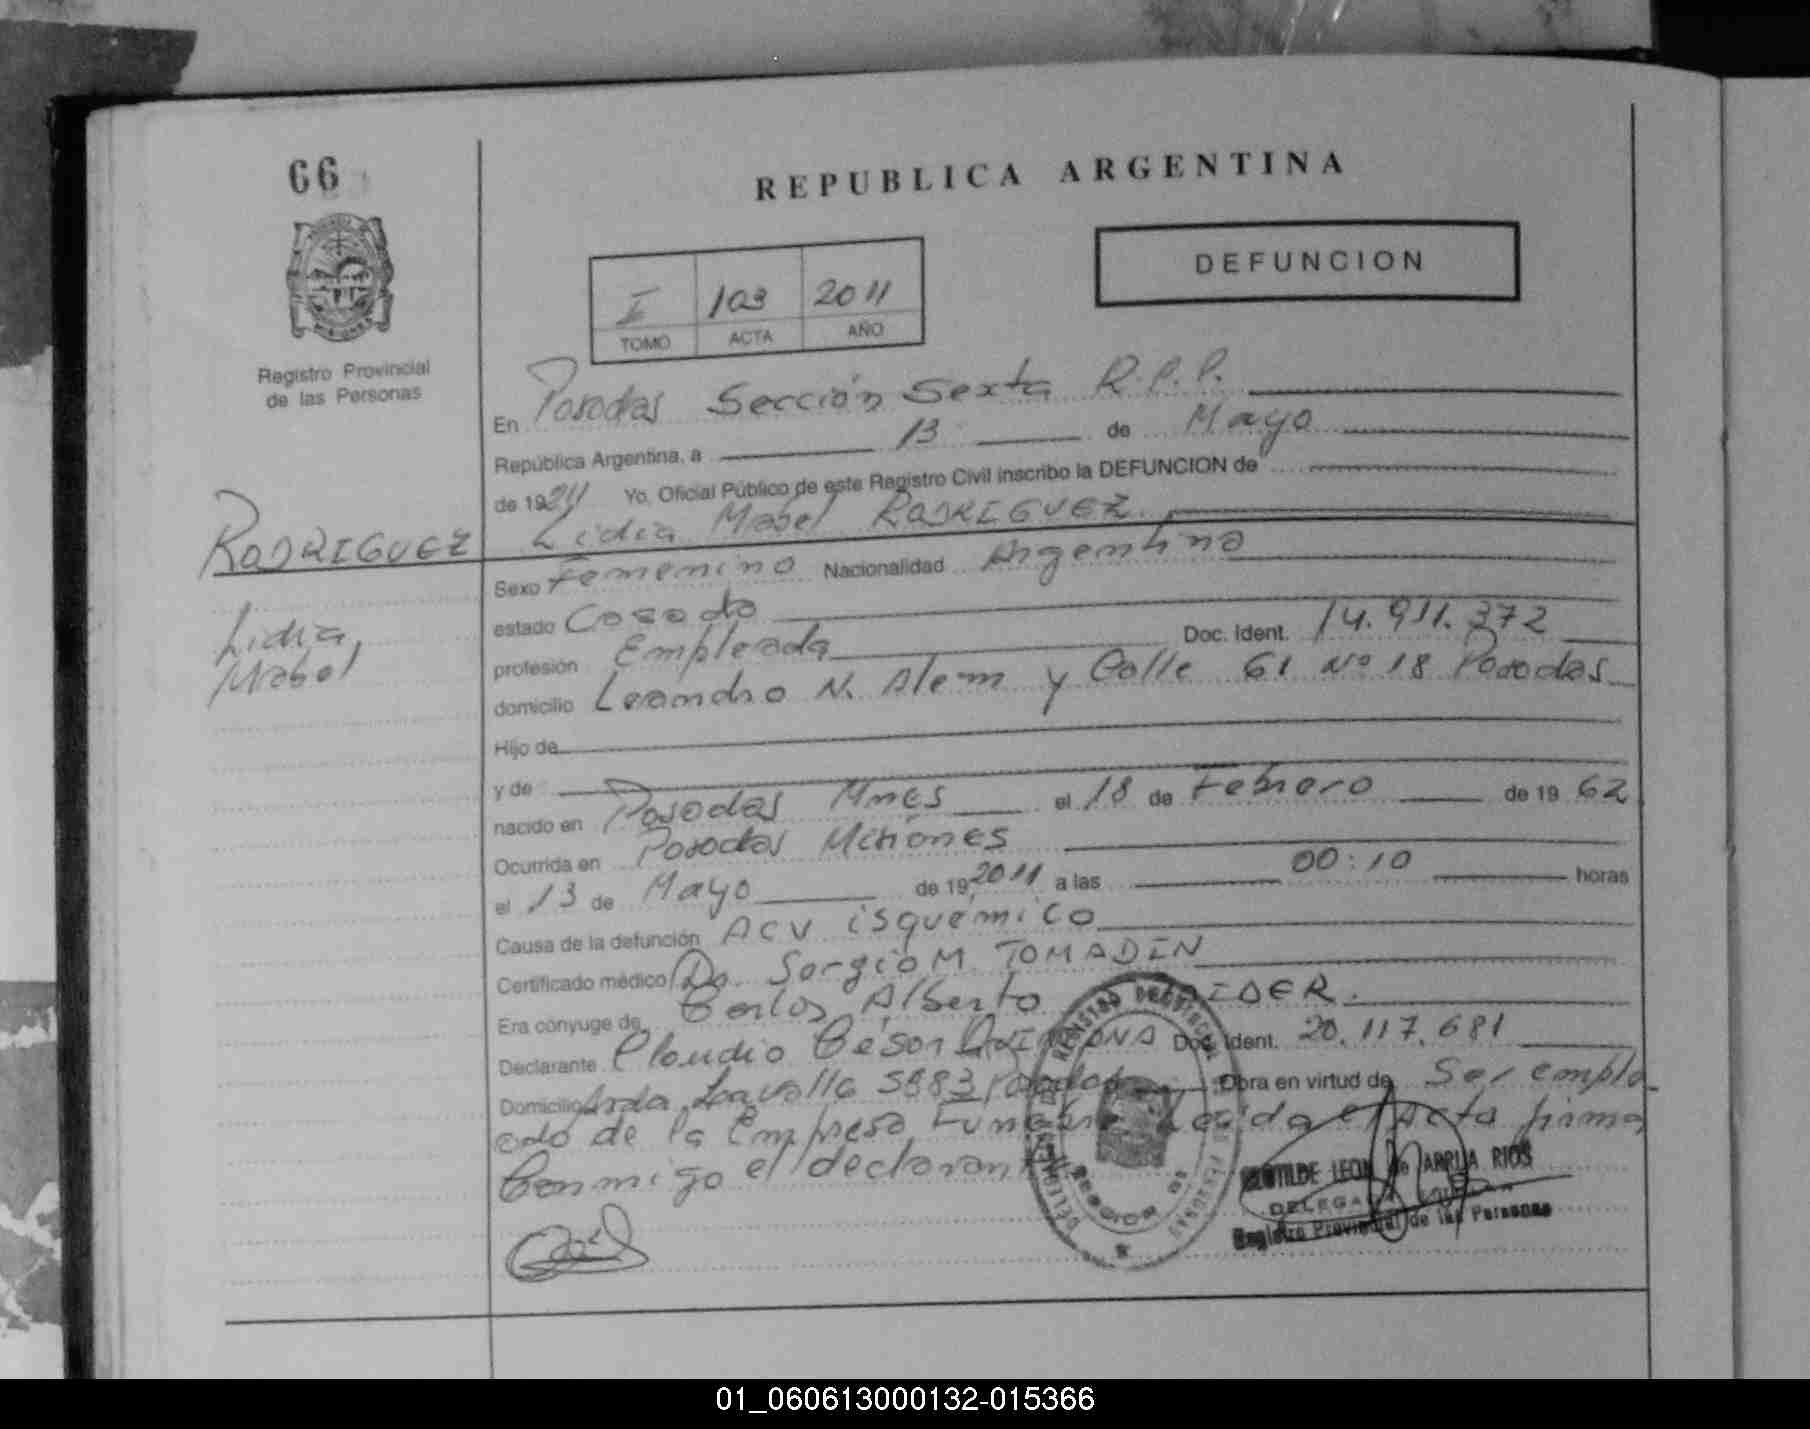 66
REPUBLICA ARGENTINA
DEFUNCION
I 103 2011
TOMO ACTA AÑO
Registro Provincial
de las Personas
En Posadas Sección Sexta R.P.P.
República Argentina, a 13 de Mayo
de 192011 Yo, Oficial Público de este Registro Civil inscribo la DEFUNCION de
RODRIGUEZ Lidia Mabel RODRIGUEZ
Lidia
Mabel
Sexo Femenino Nacionalidad Argentina
estado Casada
profesión Empleada Doc. Ident. 14.911.372
domicilio Leandro N. Alem y Calle 61 Nº 18 Posadas
Hijo de
y de
nacido en Posadas Mnes el 18 de Febrero de 19 62
Ocurrida en Posadas Misiones
el 13 de Mayo de 19 2011 a las 00:10 horas
Causa de la defunción ACV isquémico
Certificado médico Dr. Sergio M. TOMADIN
Era cónyuge de Carlos Alberto
Declarante Claudio César Doc. Ident. 20.117.681
Domicilio Avda Lavalle 5883 Posadas Obra en virtud de Ser emplea
ado de la Empresa Fúnebre Leída el Acta firma
Conmigo el declarante
CLOTILDE LEON de ARRUA RIOS
DELEGADA
Registro Provincial de las Personas
01_060613000132-015366